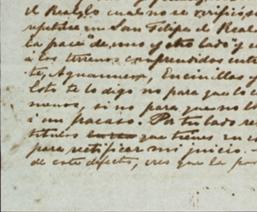 el Realejo cual no se verificó, si
repetirse en San Felipe el Real
la pace" de, uno y otro lado "y
á los terrenos comprendidos entre
te, Aguanueva, Encinillas y
Esto te lo digo no para que lo
menos, si no para que no
i un fracaso. Por tu lado
títulos que tienes en
para rectificar mi juicio.
de este defecto, creo que la